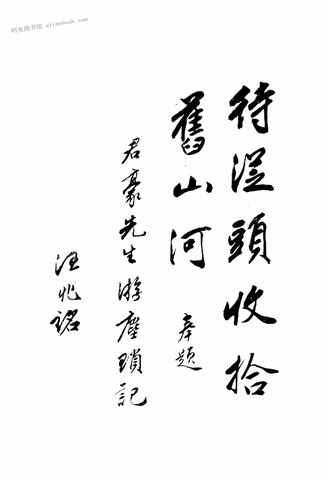 待從頭收拾
舊山河
奉題
君豪先生游塵瑣記
汪兆銘